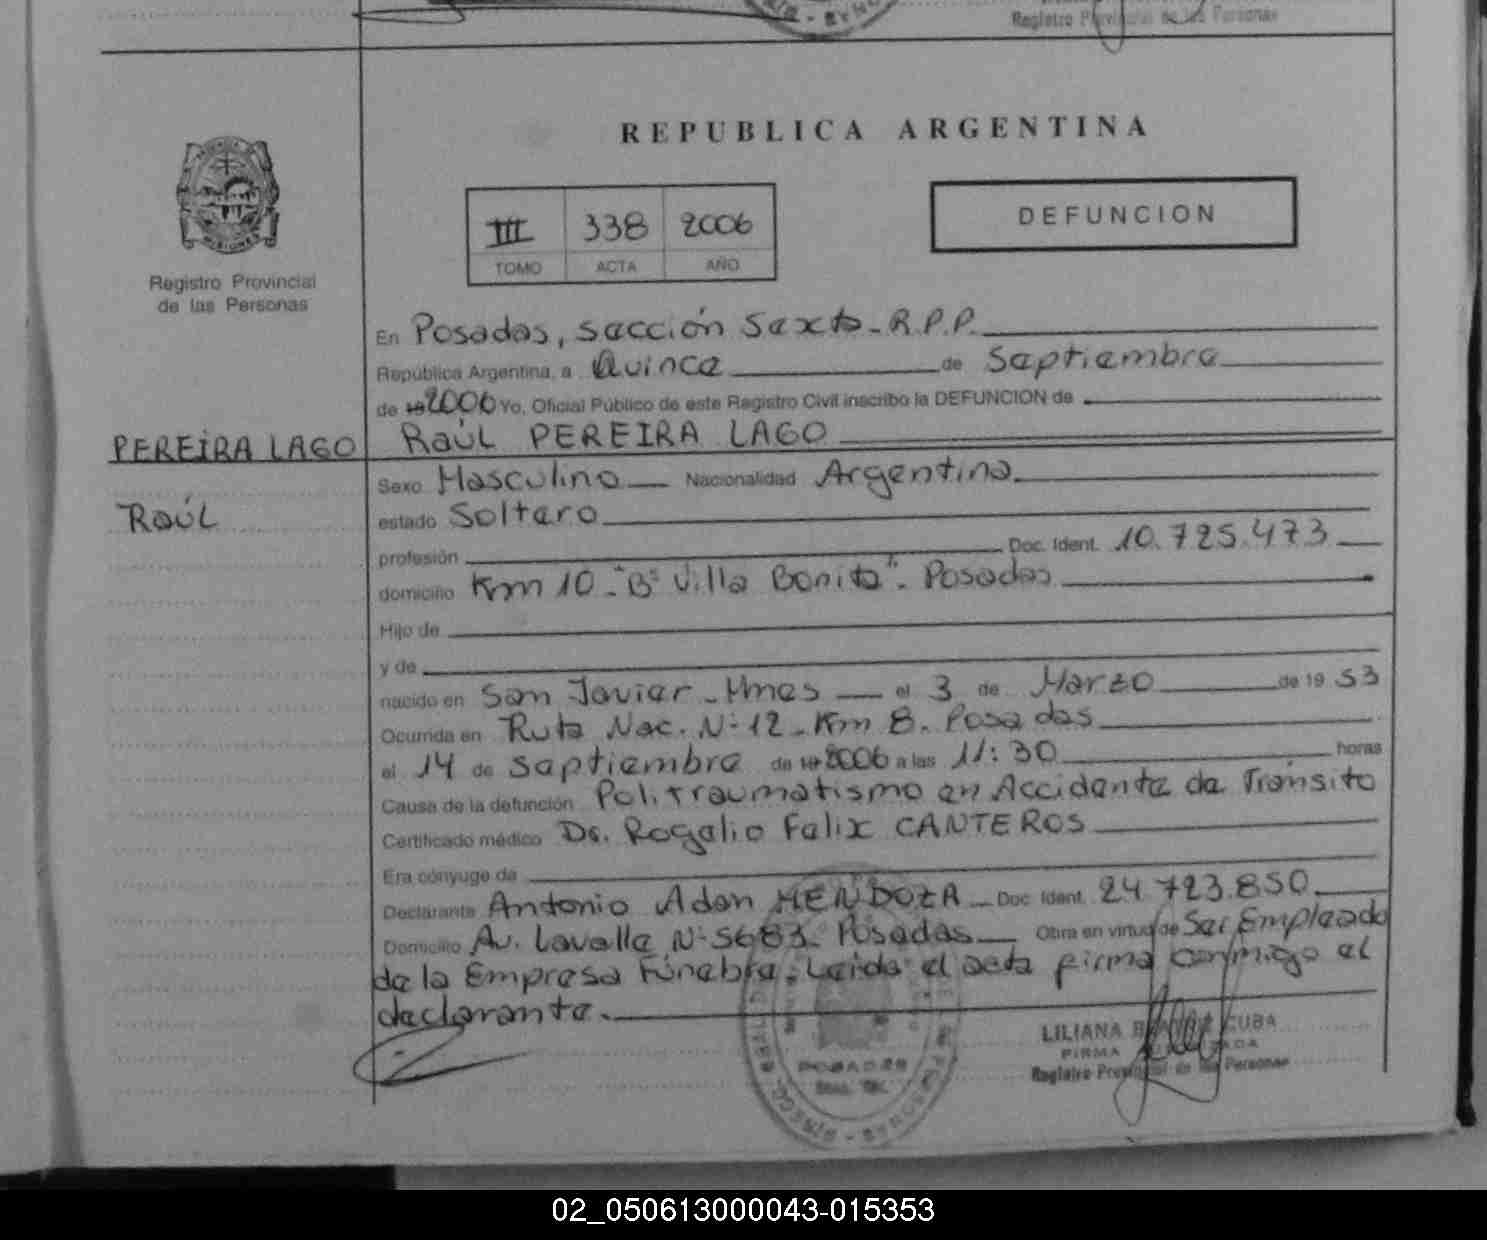 Registro Provincial de las Personas
REPUBLICA ARGENTINA
III 338 2006
TOMO ACTA AÑO
DEFUNCION
Registro Provincial
de las Personas
En Posadas, sección Sexta - R.P.P.
República Argentina, a Quince de Septiembre
de 19 2006 Yo, Oficial Público de este Registro Civil inscribo la DEFUNCION de
PEREIRA LAGO RaúL PEREIRA LAGO
Sexo Masculino Nacionalidad Argentina.
Raúl
estado Soltero
profesión Doc. Ident. 10.725.473
domicilio Km 10 - "Bº Villa Bonita" - Posadas
Hijo de
y de
nacido en San Javier - Mnes el 3 de Marzo de 19 53
Ocurrida en Ruta Nac. Nº 12 - Km 8. Posadas
el 14 de septiembre de 19 2006 a las 11:30 horas
Causa de la defunción Politraumatismo en Accidente de Tránsito
Certificado médico Dr. Rogelio Felix CANTEROS
Era cónyuge de
Declarante Antonio Adan MENDOZA Doc. Ident. 24.723.850
Domicilio Av. Lavalle Nº 5683 - Posadas Obra en virtud de Ser Empleado
de la Empresa Fúnebre. Leída el acta firma conmigo el
declarante.
LILIANA CUBA
FIRMA
Registro Provincial de las Personas
POSADAS
02_050613000043-015353